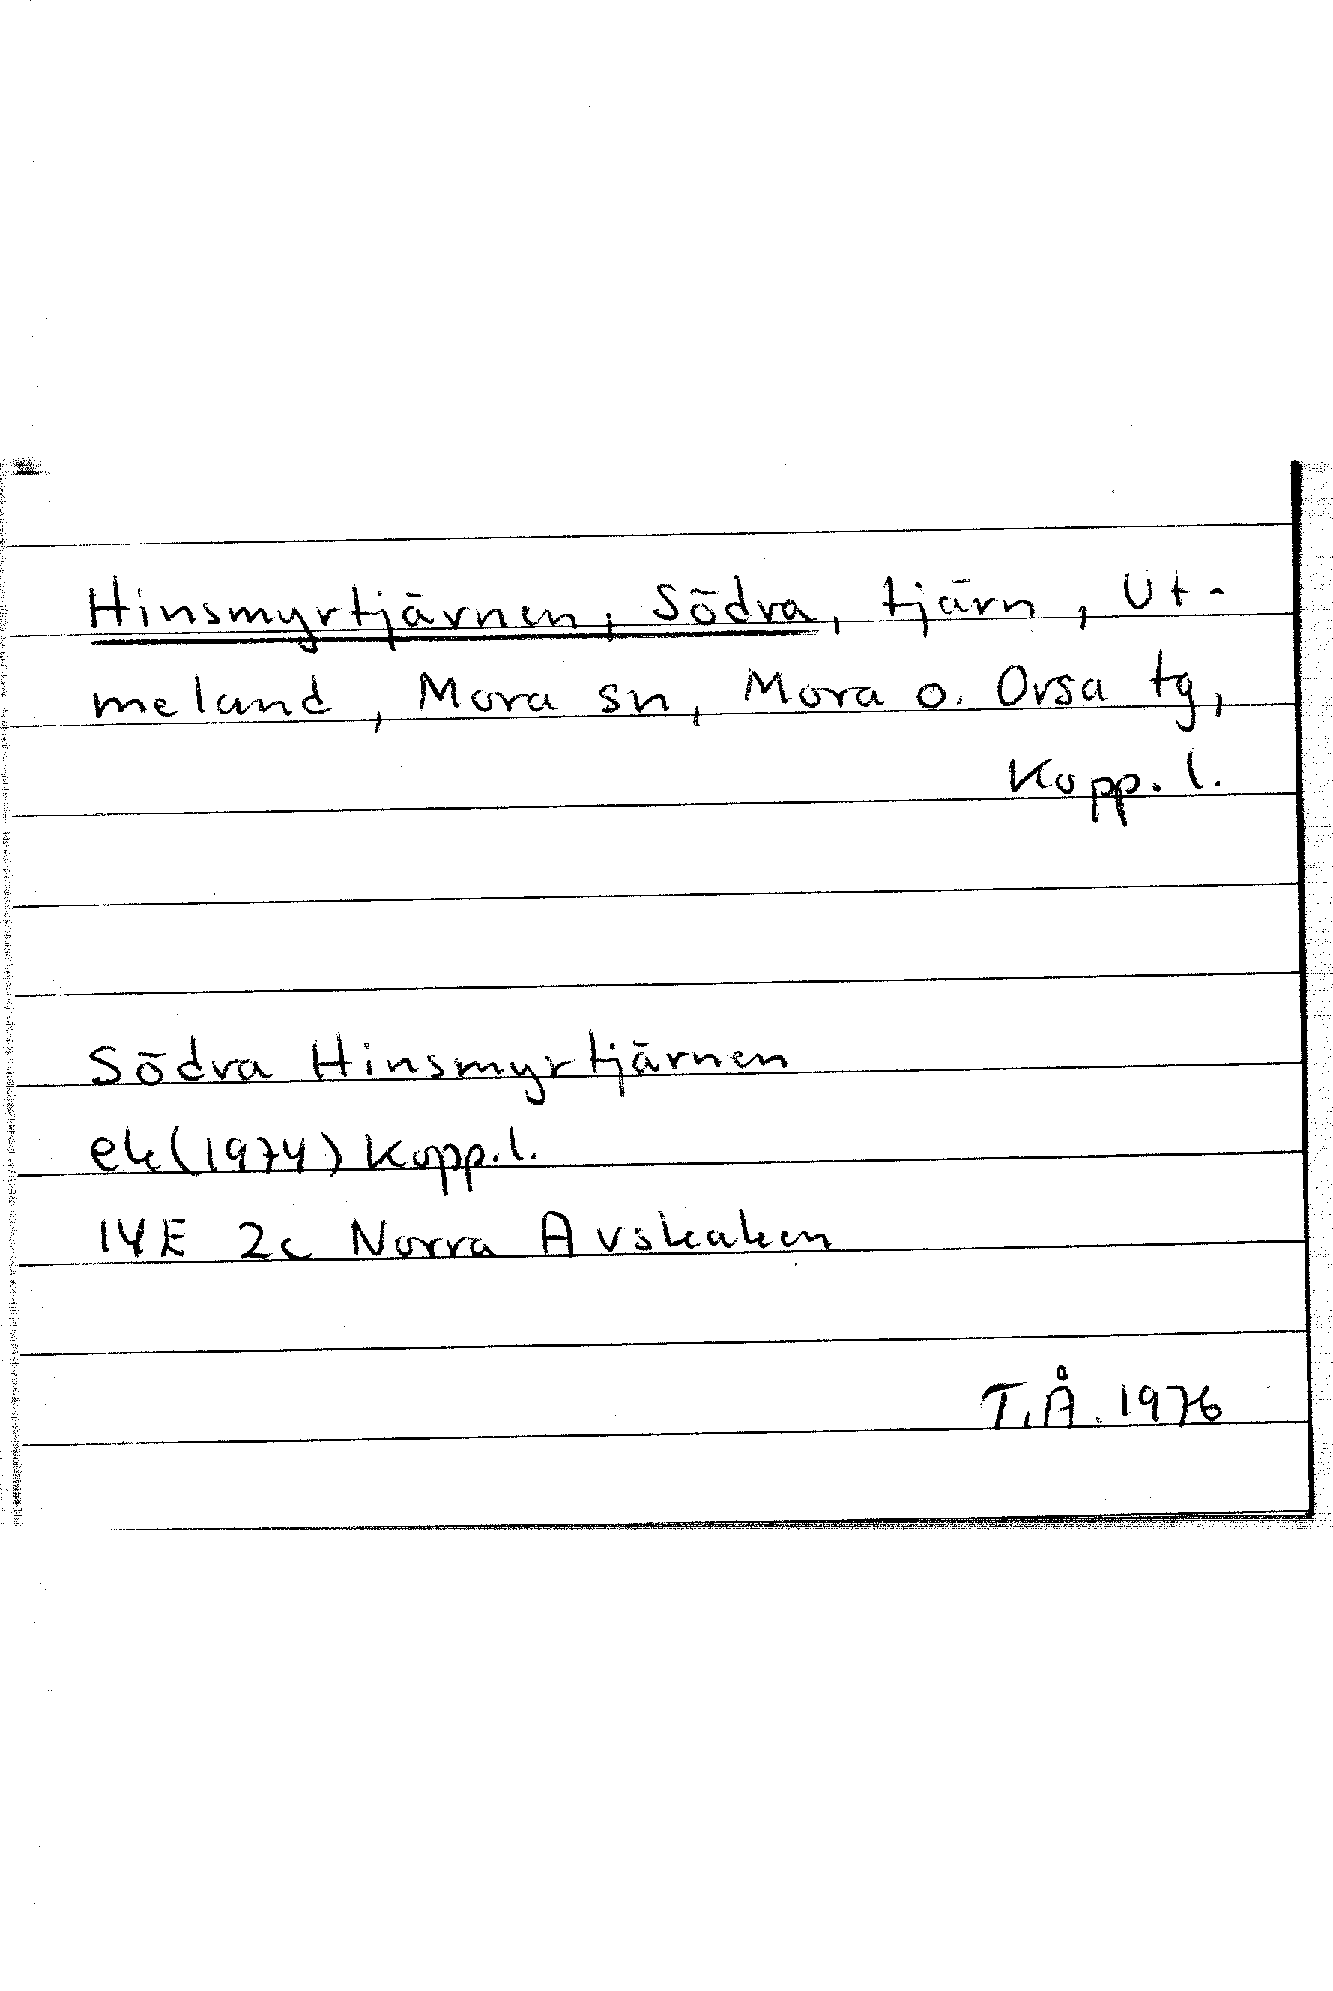 Hinsmyrtjärnen, Södra, tjärn, Ut-
meland, Mora sn, Mora o. Orsa tg,
Kopp. l.
Södra Hinsmyrtjärnen
ek (1974) Kopp. l.
14E 2c Norra Avskaken
T.Å. 1976